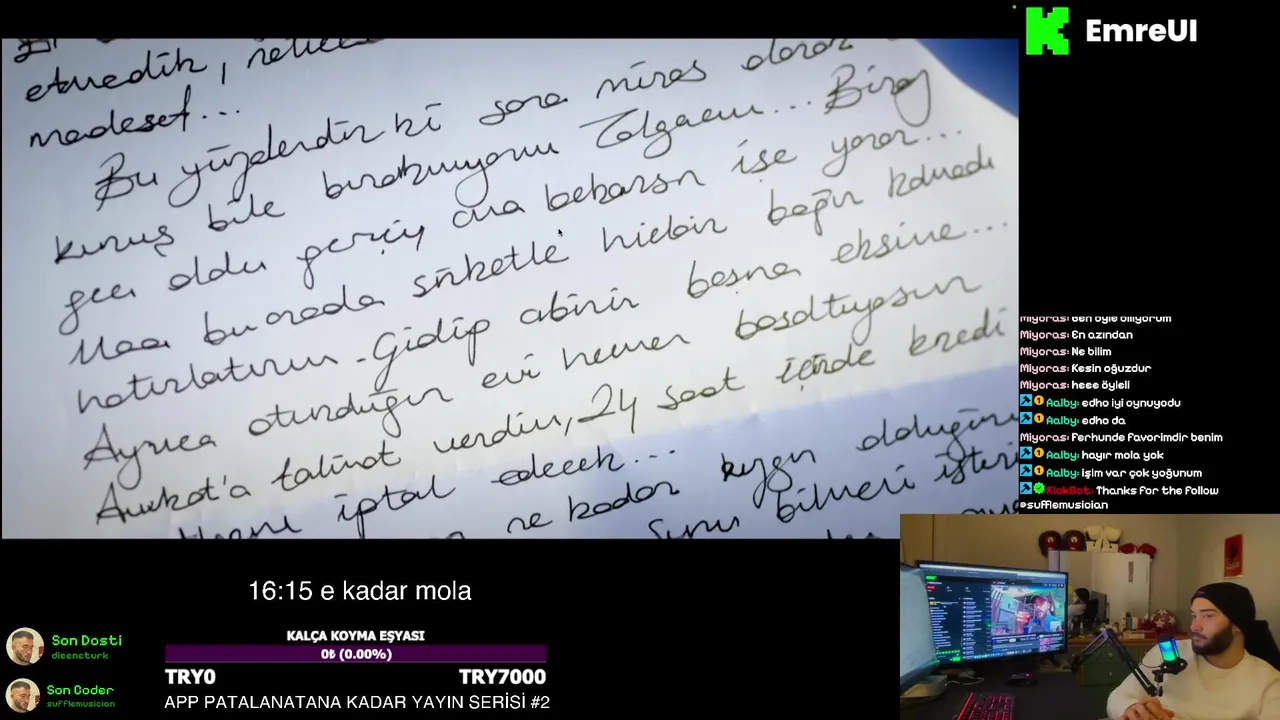 etmedik,
madeset...
Bu yüzdendir ki sana miras olarak
kuruş bile bırakmıyorum Tolgacım... Biraz
geç oldu gerçi ama bekarsın işe yarar...
Maa burada şirketle hiçbir bağın kalmadı
hatırlatırım. Gidip abinin başına eksime...
Ayrıca oturduğun evi hemen boşaltıyorsun
Avukat'a talimat verdim, 24 saat içinde kredi
iptal edecek...
ne kadar kızgın olduğunu
bilmeni
EmreUI
Miyoras: Ben öyle biliyorum
Miyoras: En azından
Miyoras: Ne bilim
Miyoras: Kesin oğuzdur
Miyoras: heee öyleli
Aalby: edho iyi oynuyodu
Aalby: edho da
Miyoras: Ferhunde favorimdir benim
Aalby: hayır mola yok
Aalby: işim var çok yoğunum
KickBot: Thanks for the follow
@sufflemusician
16:15 e kadar mola
Son Dosti
diccneturk
Son Goder
sufflemusician
KALÇA KOYMA EŞYASI
0₺ (0.00%)
TRY0 TRY7000
APP PATALANATANA KADAR YAYIN SERİSİ #2